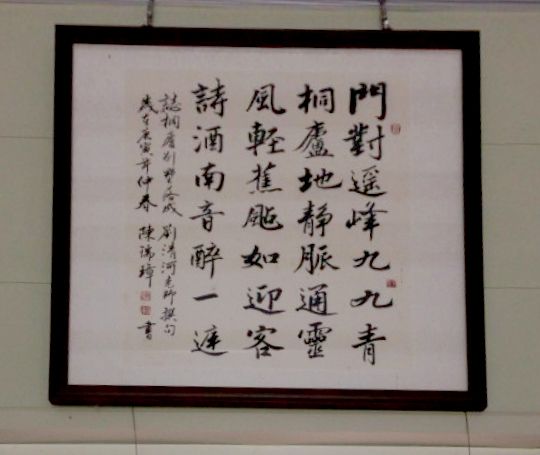 門對遥峰九九青
桐廬地靜脈通靈
風輕蕉颭如迎客
詩酒南音醉一庭
誌桐廬別墅落成 劉清河老師撰句
歲在庚寅年仲春 陳瑞璋 書